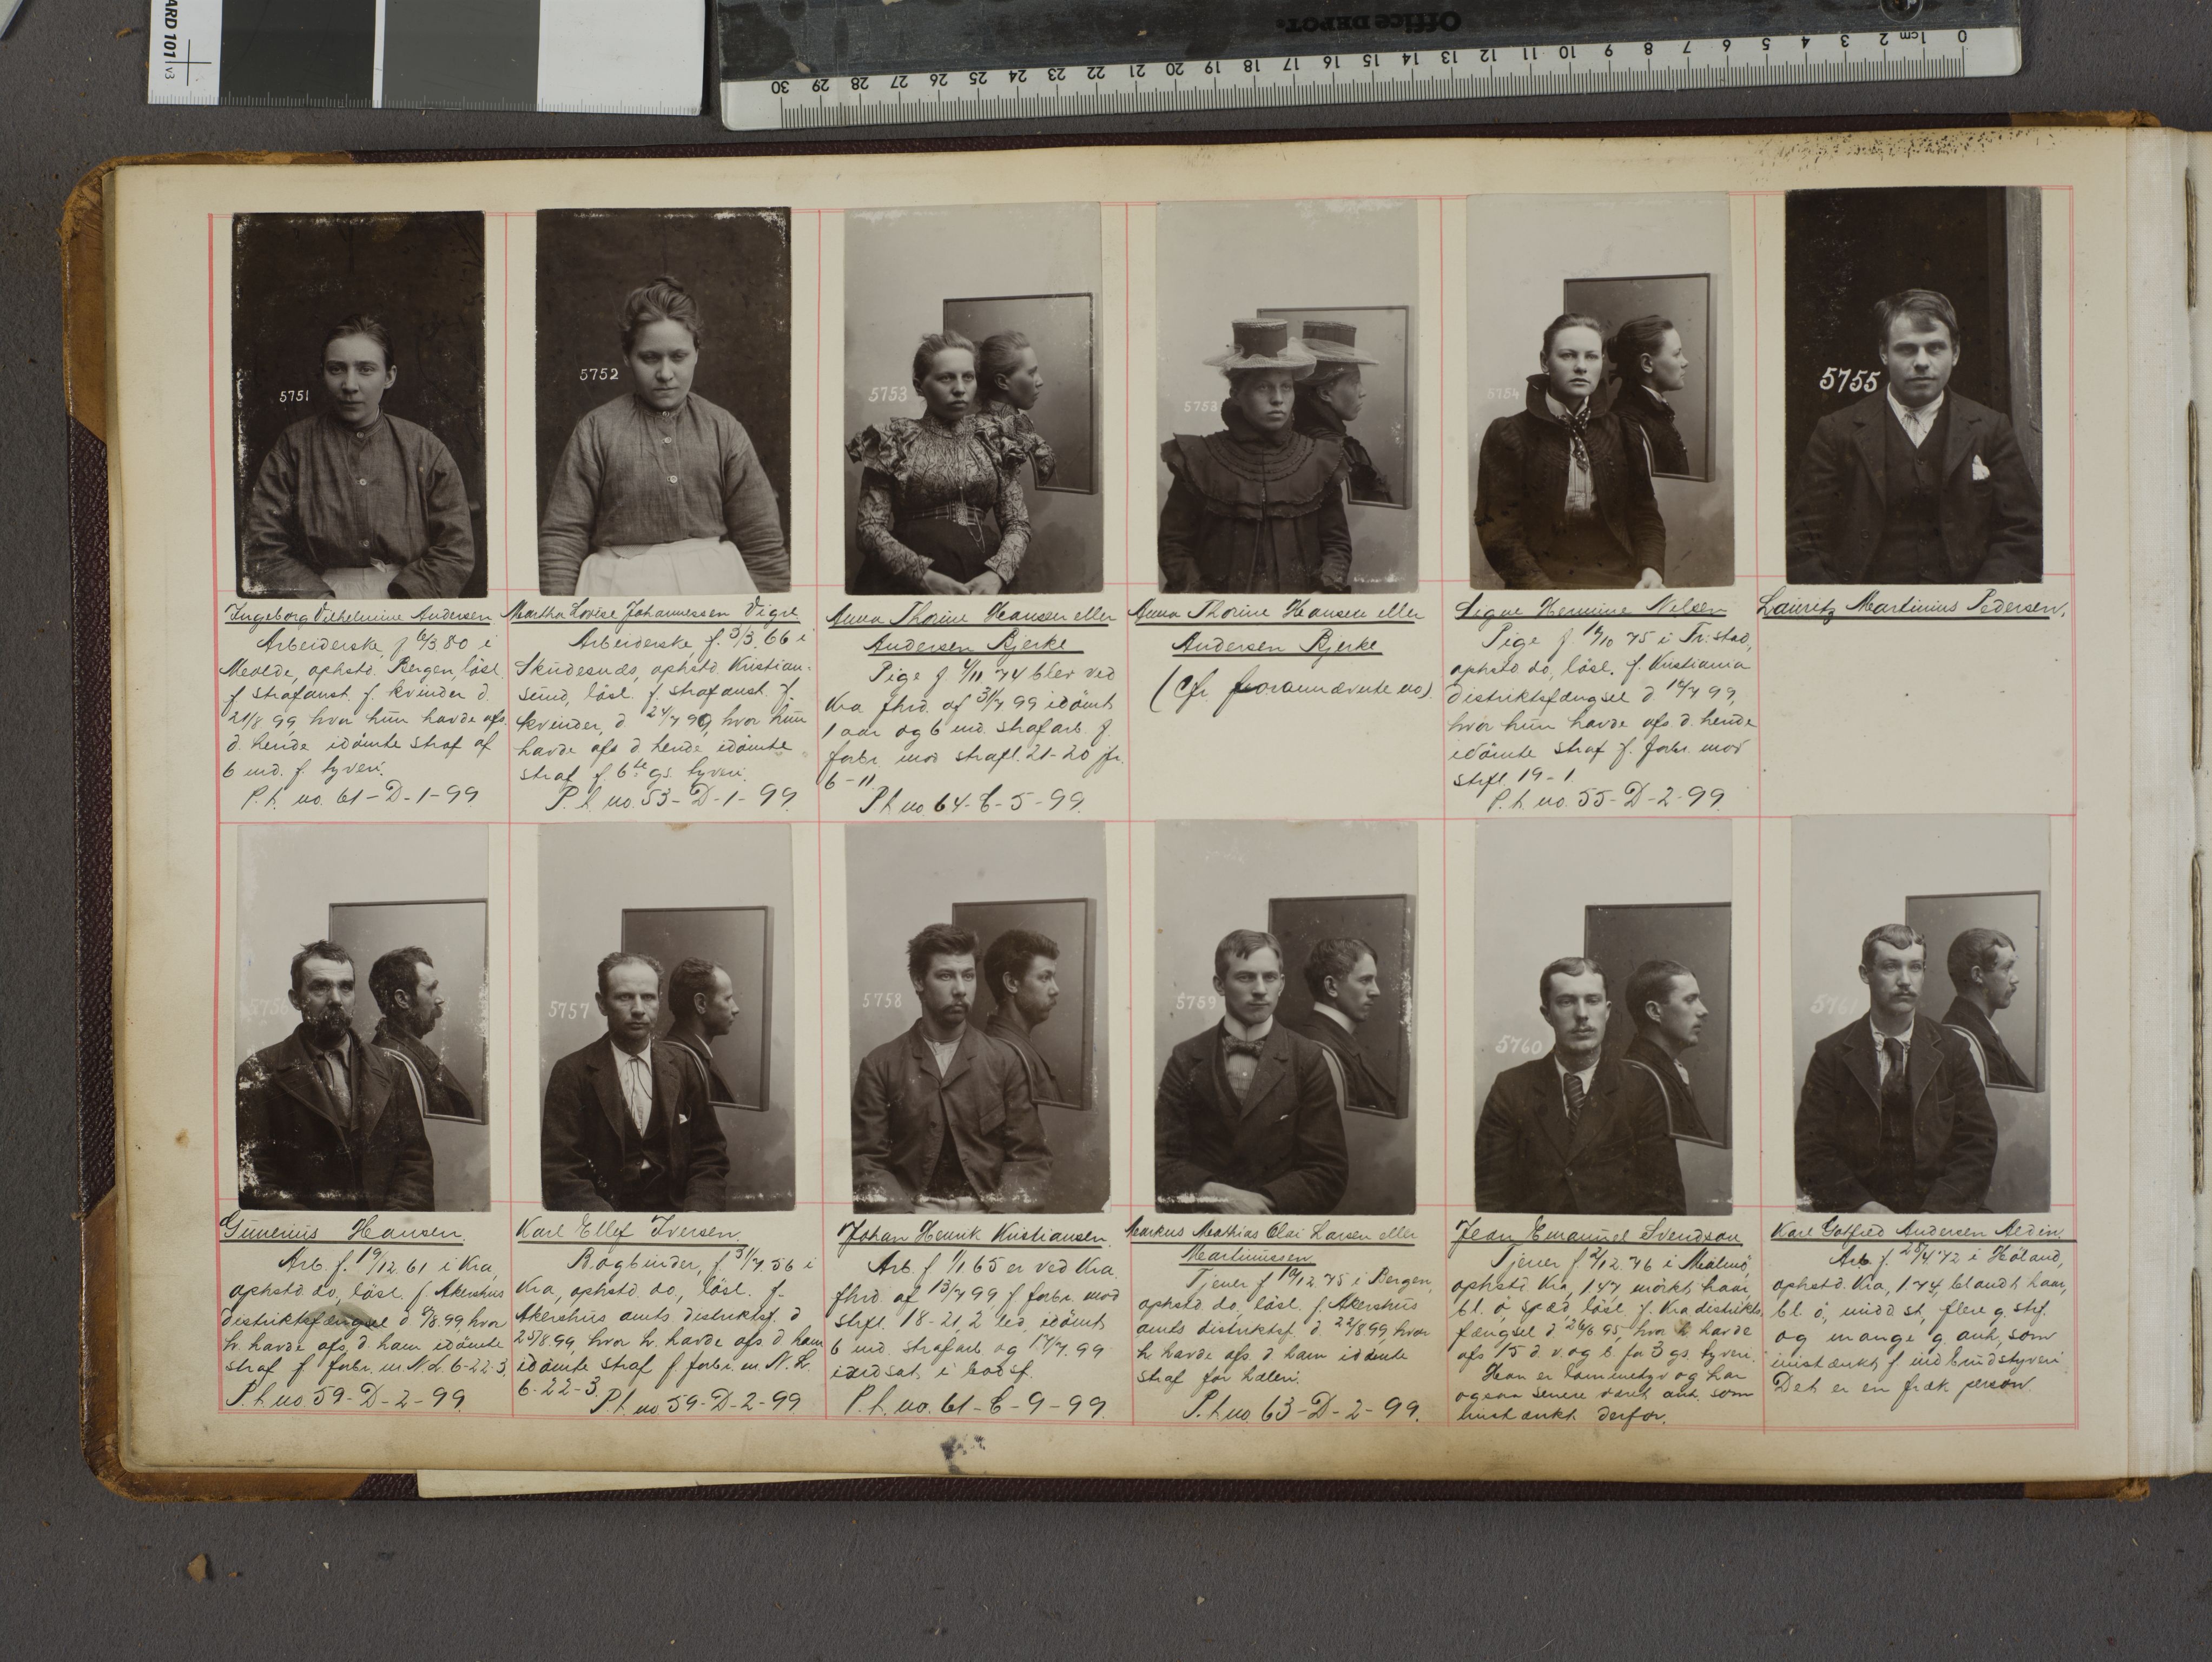 ARD 101 v3
Office DEPOT
0 1cm 2 3 4 5 6 7 8 9 10 11 12 13 14 15 16 17 18 19 20 21 22 23 24 25 26 27 28 29 30
5751
Ingeborg Vilhelmine Andersen
Arbeiderske, f 6/3.80 i
Molde, ophstd. Bergen, løsl.
f strafanst. f. kvinder d.
21/8 99, hvor hun havde afs.
d. hende idømte straf af
6 md. f. tyveri.
P.h. no. 61-D-1-99
5752
Martha Lovise Johannessen Vigre
Arbeiderske, f. 3/3.66 i
Skudesnæs, ophstd. Kristian-
sund, løsl. f. strafanst. f.
kvinder, d 24/7 99, hvor hun
havde afs d. hende idømte
straf f. 6te gs. tyveri.
P.h. no. 53-D-1-99.
5753
Anna Thorine Hansen eller
Andersen Bjerke
Pige f 4/11 74 blev ved
Kra fhrd. af 31/7 99 idømt
1 aar og 6 md. strafarb. f.
forbr. mod strafl. 21-20 jfr.
6-11.
P h no 64-C-5-99.
5753
Anna Thorine Hansen eller
Andersen Bjerke
(Cfr. forannævnte no).
5754
Signe Hermine Nelsen
Pige f 19/10 75 i Fr.stad,
ophstd do, løsl. f. Kristiania
Distriktsfængsel d 14/7 99,
hvor hun havde afs d. hende
idømte straf f. forbr. mod
strfl. 19-1.
P. h. no. 55-D-2-99.
5755
Lauritz Martinius Pedersen.
5756
Gunerius Hansen.
Arb. f. 19/12 61 i Kra,
ophstd do, løsl. f. Akershus
distriktsfængsel d 9/8.99, hvor
h. havde afs, d. ham idømte
straf f forbr. m. N. L. 6-22-3.
P. h. no. 59-D-2-99.
5757
Karl Ellef Iversen.
Bogbinder, f. 31/7.56 i
Kra, ophstd. do., løsl. f.
Akershus amts distriktsf. d
25/8.99, hvor h. havde afs. d ham
idømte straf f forbr. m. N. L.
6-22-3. P h no 59-D-2-99
5758
Johan Henrik Kristiansen.
Arb. f 1/1 65 er ved Kra.
fhrd. af 13/7 99 f forbr. mod
strfl. 18-21, 2 led, idømt
6 md. strafarb og 17/7.99
indsat i bodsf.
P. h. no. 61-C-9-99.
5759
Markus Mathias Olai Larsen eller
Martinussen
Tjener f 19/12 75 i Bergen,
ophstd. do, løsl. f. Akershus
amts distriktsf. d. 22/8 99, hvor
h. havde afs. d ham idømte
straf for hæleri.
P. h no. 63-D-2-99.
5760
Jean Emanuel Svendsen
Tjener f 2/12.76 i Malmø,
ophstd Kra, 1.77, mørkt haar,
bl. ø, spæd, løsl. f. Kra distrikts
fængsel d. 26/6 95, hvor h. havde
afs 15 d. v. og b. for 3 gs. tyveri.
Han er lommetyv og har
ogsaa senere været anh. som
mistænkt derfor.
5761
Karl Gotfred Andersen Aldin.
Arb f. 28/4.72 i Høland,
ophstd. Kra, 1.74, blandt haar,
bl. ø, midd st, flere g. strf.
og mange g anh, som
mistænkt f indbrudstyveri
Det er en fræk person.